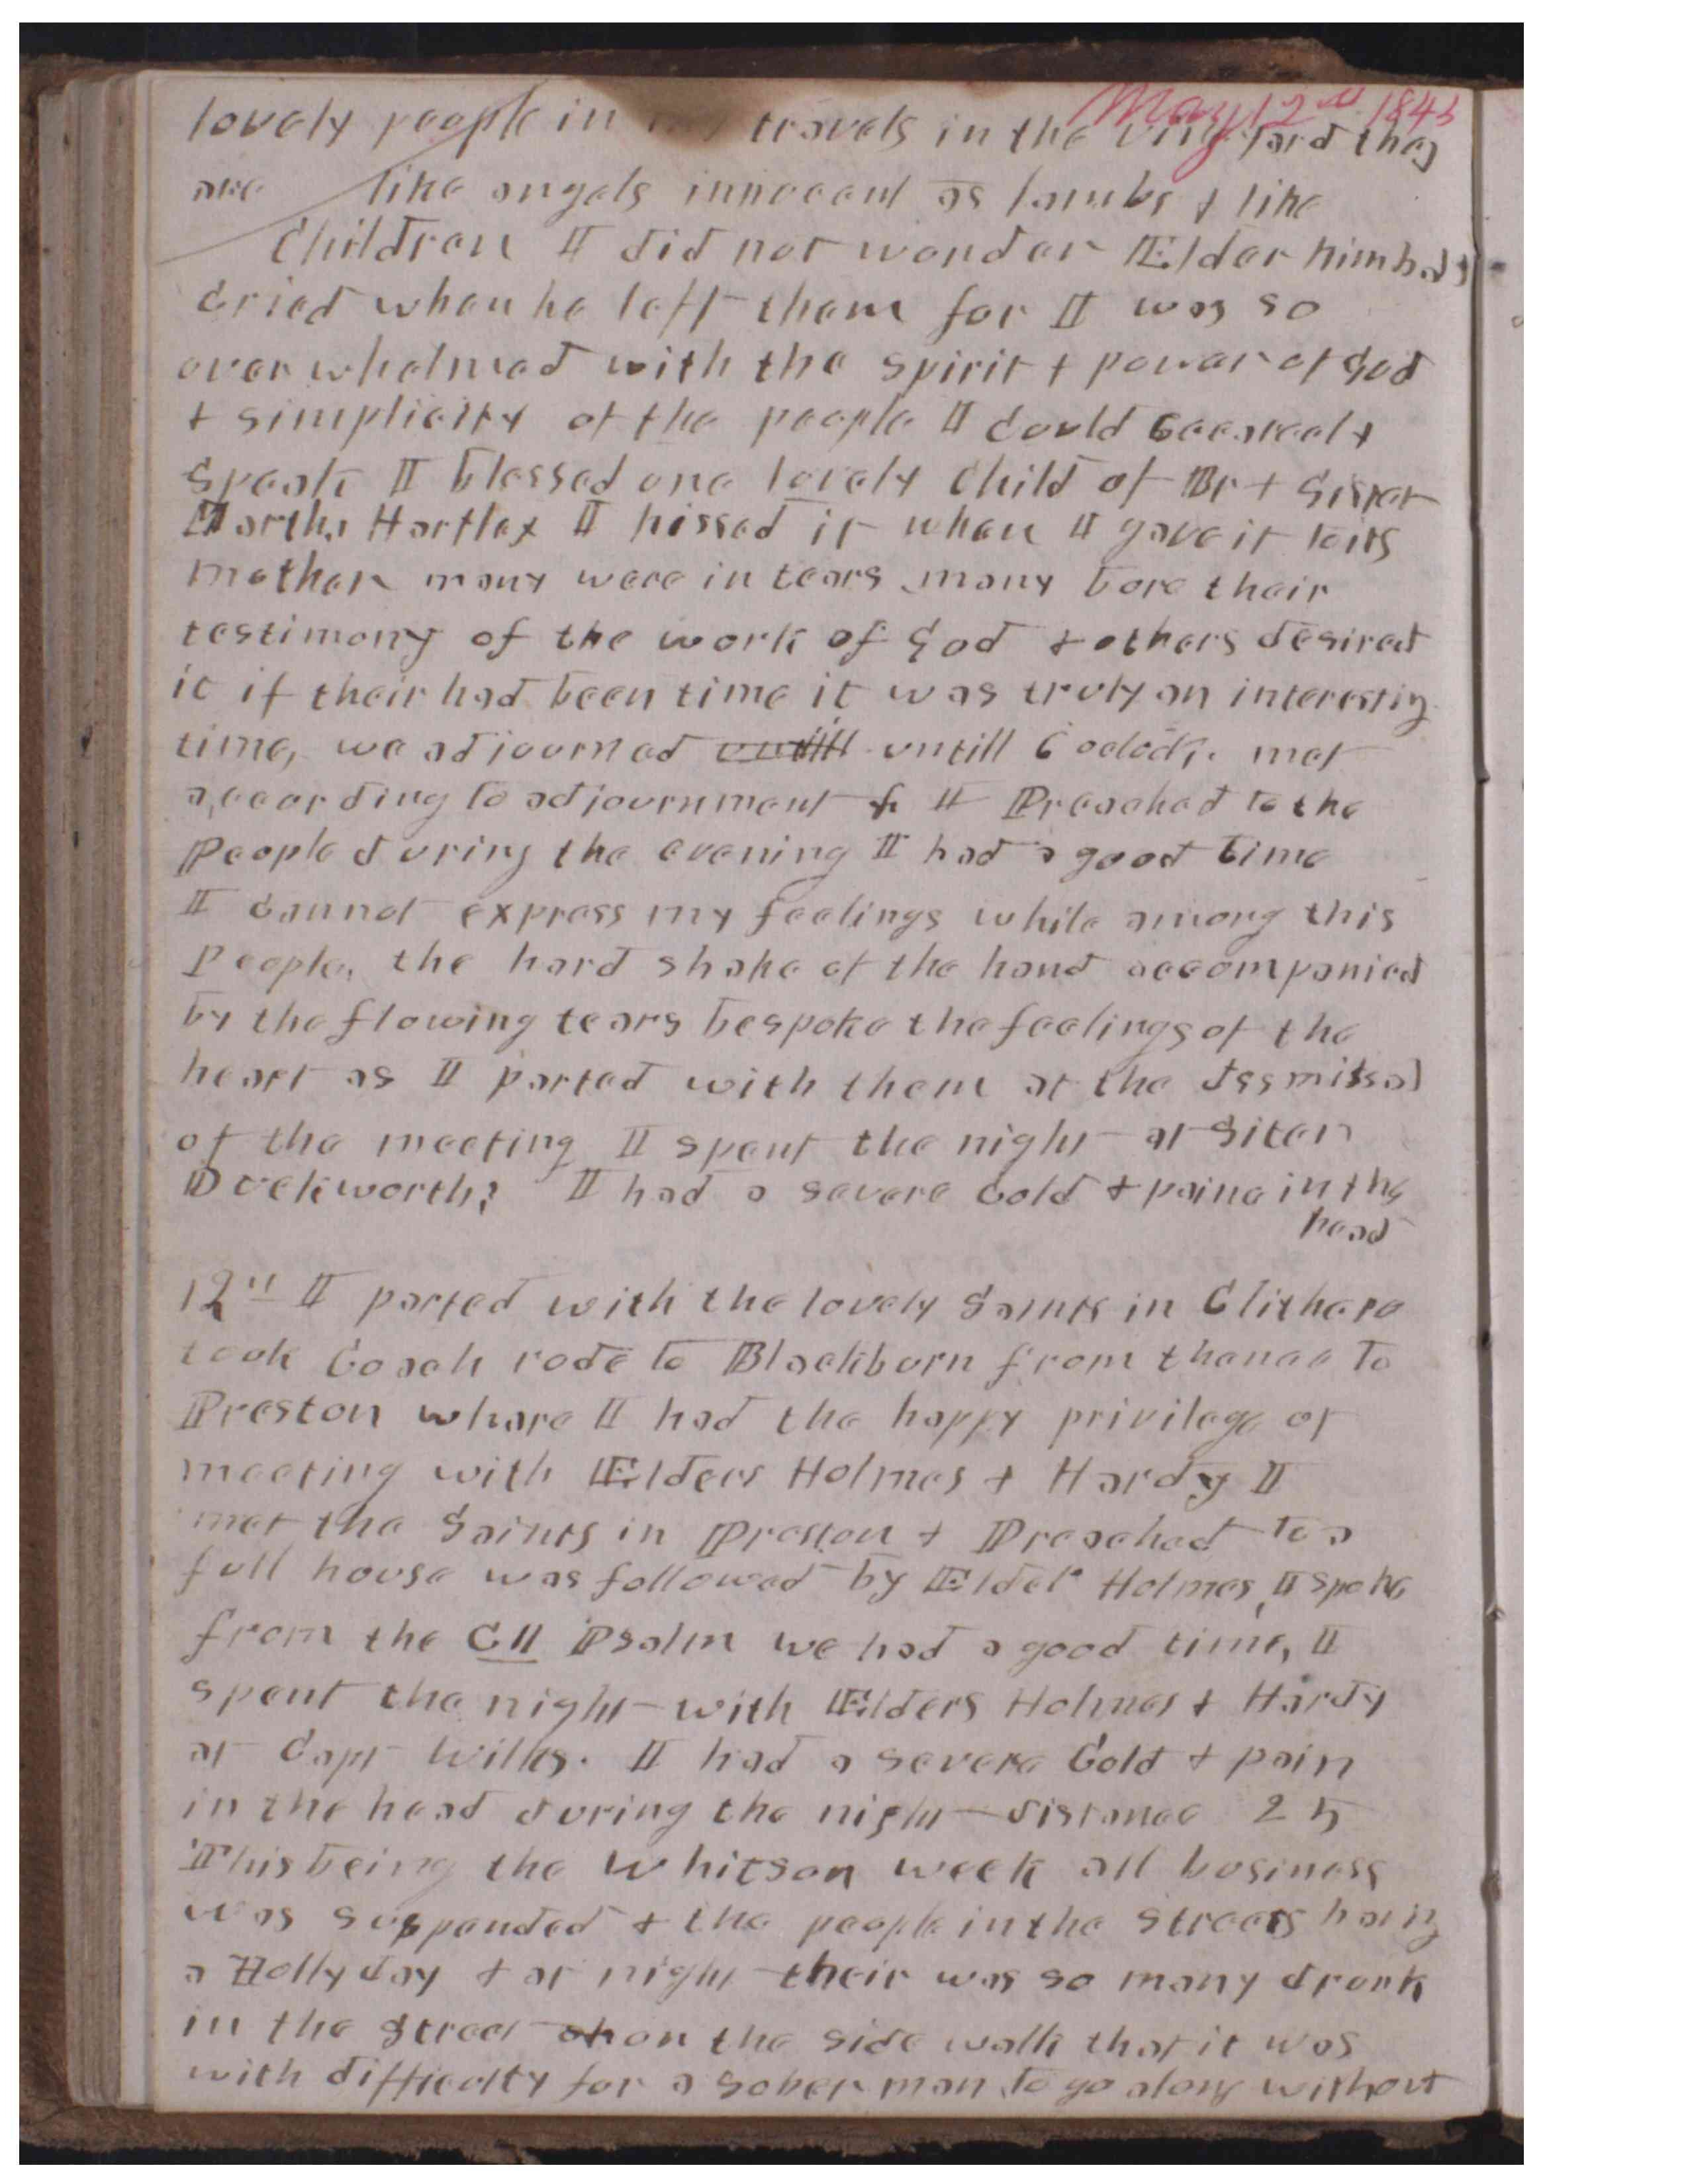 May 12th 1845
lovely people in my travels in the vineyard they
are like angels innocent as lambs & like
Children I did not wonder Elder Kimball
cried when he left them for I was so
overwhelmed with the spirit & power of God
& simplicity of the people I could scarcely
speak I blessed one lovely Child of Br & Sister
Martha Hartley I kissed it when I gave it to its
mother many were in tears many bore their
testimony of the work of God & others desired
it if their had been time it was truly an interesting
time, we adjourned untill untill 6 oclock. met
according to adjournment & I Preached to the
People during the evening I had a good time
I cannot express my feelings while among this
People, the hard shake of the hand accompanied
by the flowing tears bespoke the feelings of the
heart as I parted with them at the dssmissal
of the meeting I spent the night at Siter
Duckworth? I had a severe Cold & paine in the
head
12th I parted with the lovely Saints in Clithero
took Coach rode to Blackburn from thence to
Preston whare I had the happy privilege of
meeting with Elders Holmes & Hardy I
met the Saints in Preston & Preached to a
full house was followed by Elder Holmes, I spoke
from the CII Psalm we had a good time, I
spent the night with Elders Holmes & Hardy
at Capt Wilkes. I had a severe Cold & pain
in the head during the night distance 25
This being the Whitson week all business
was suspended & the people in the streets having
a Hollyday & at night their was so many drunk
in the street on the side walk that it was
with difficulty for a sober man to go along without